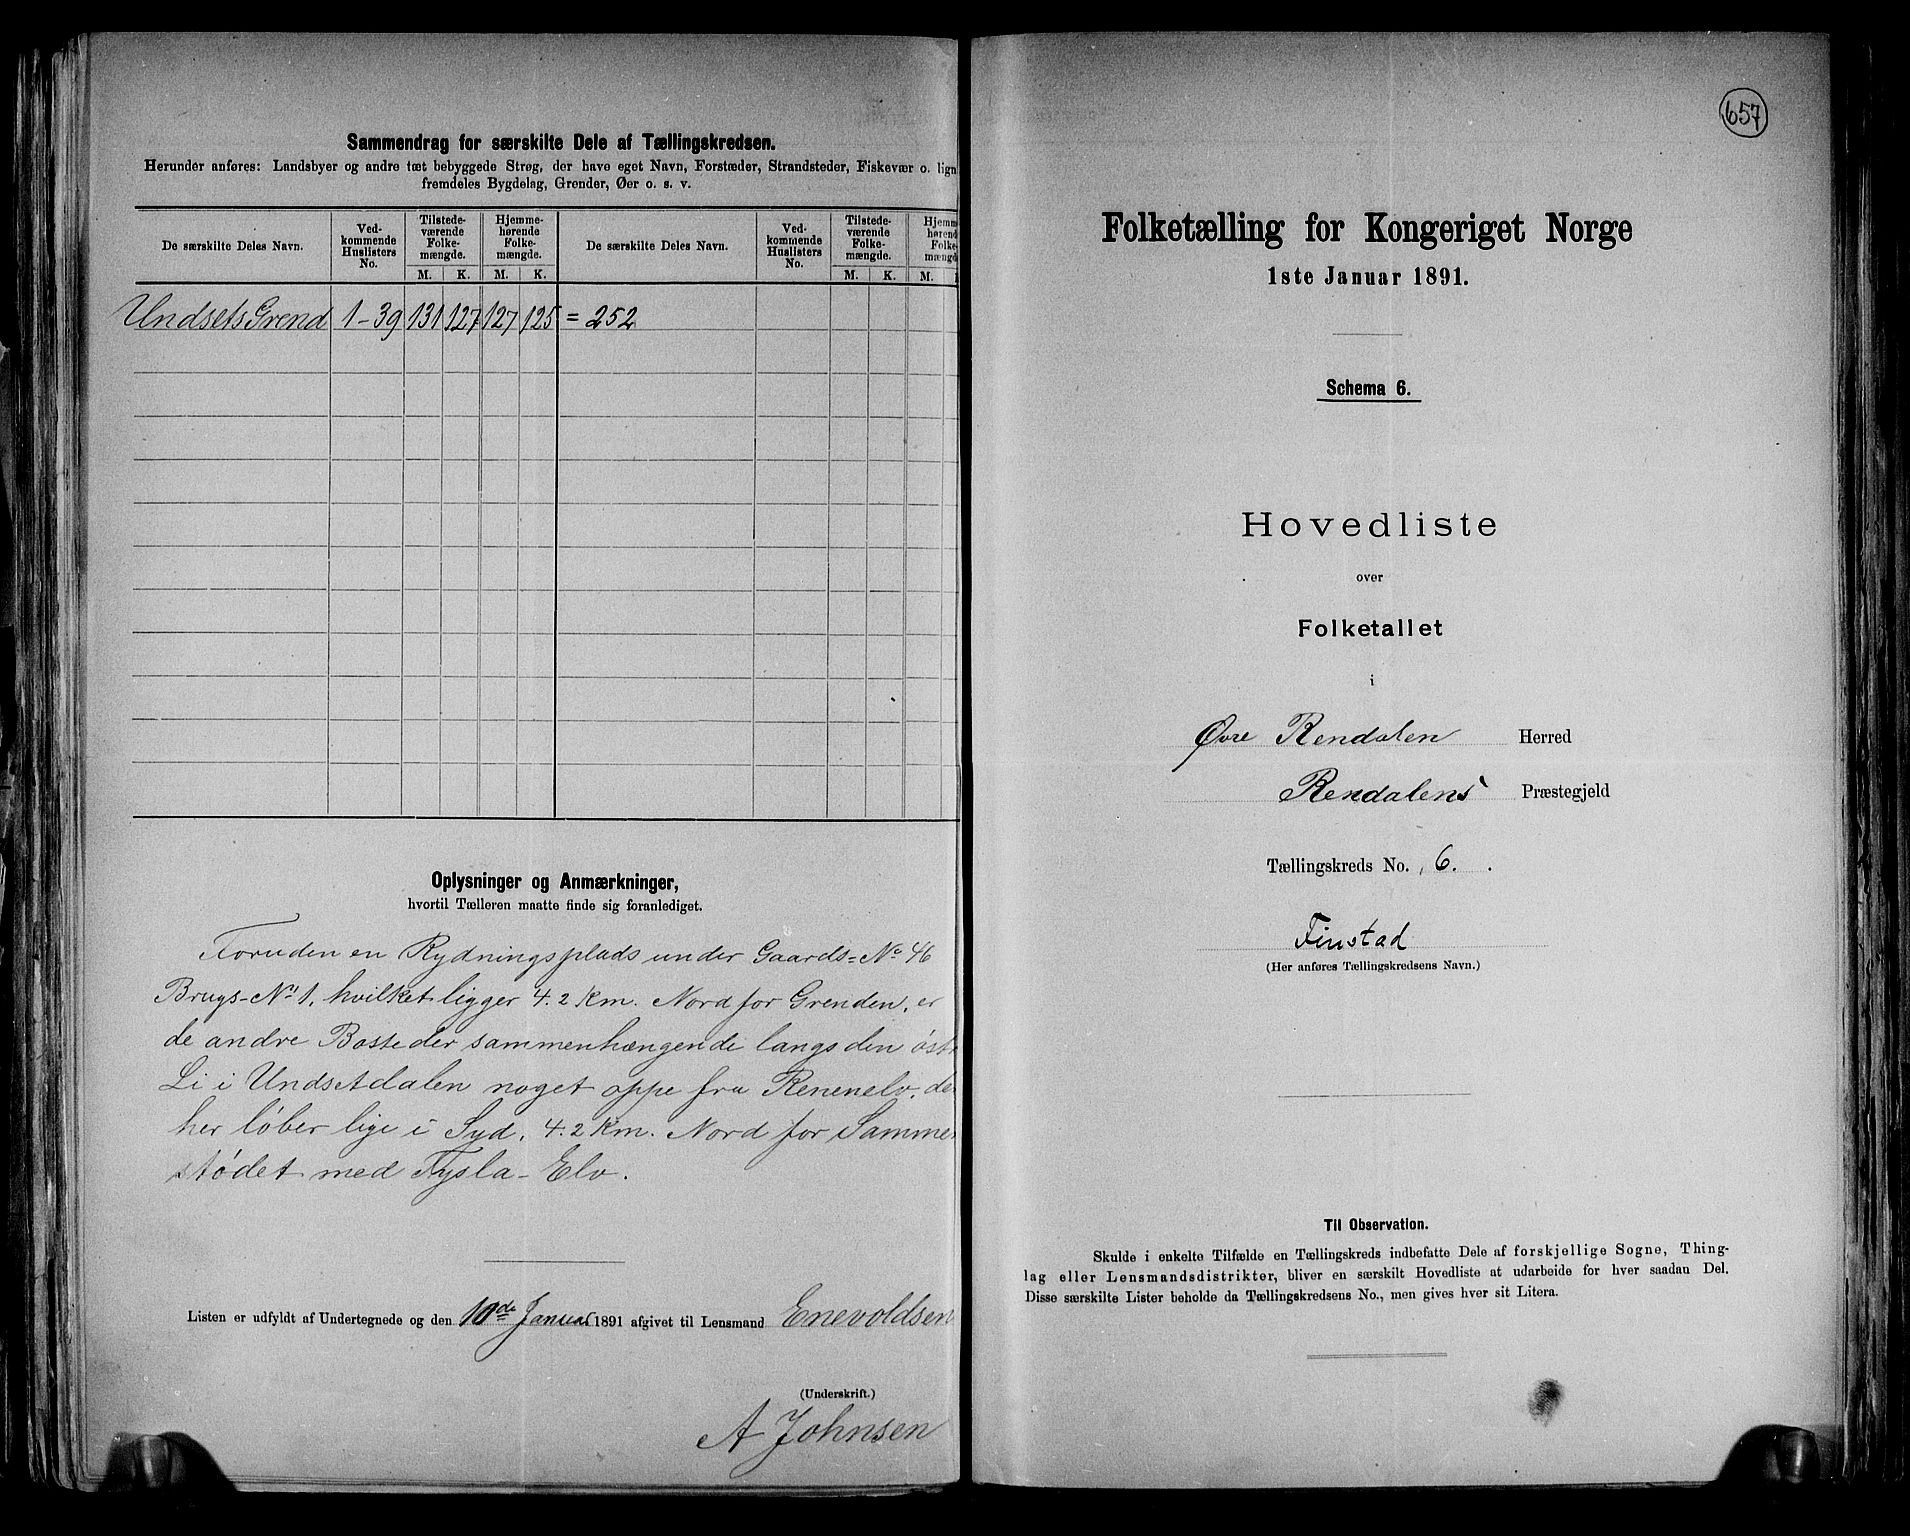 Sammendrag for særskilte Dele af Tællingskredsen.
Herunder anføres: Landsbyer og andre tæt bebyggede Strøg, der have eget Navn, Forstæder, Strandsteder, Fiskevær o. lign
fremdeles Bygdelag, Grender, Øer o. s. v.
De særskilte Deles Navn. Ved-kommende Huslisters No. Tilstede-værende Folke-mængde. Hjemme-hørende Folke-mængde. De særskilte Deles Navn. Ved-kommende Huslisters No. Tilstede-værende Folke-mængde. Hjemme hørend Folke mængd
M. K. M. K. M. K. M.
Undsets Grend 1-39 131 127 127 125 = 252
Oplysninger og Anmærkninger,
hvortil Tælleren maatte finde sig foranlediget.
Foruden en Rydningsplads under Gaards=No 46
Brugs-No 1, hvilket ligger 4.2 Km. Nord for Grenden, er
de andre Bosteder sammenhængende langs den øst
Li i Undsetdalen noget oppe fra Renenelv, de
her løber lige i Syd, 4.2 Km. Nord for Samme
stødet med Tysla-Elv.
Listen er udfyldt af Undertegnede og den 10de Januar 1891 afgivet til Lensmand Enevoldsen
(Underskrift.)
A Johnsen
657
Folketælling for Kongeriget Norge
1ste Januar 1891.
Schema 6.
Hovedliste
over
Folketallet
i
Øvre Rendalen Herred
Rendalens Præstegjeld
Tællingskreds No. 6.
Finstad
(Her anføres Tællingskredsens Navn.)
Til Observation.
Skulde i enkelte Tilfælde en Tællingskreds indbefatte Dele af forskjellige Sogne, Thing-
lag eller Lensmandsdistrikter, bliver en særskilt Hovedliste at udarbeide for hver saadan Del.
Disse særskilte Lister beholde da Tællingskredsens No., men gives hver sit Litera.